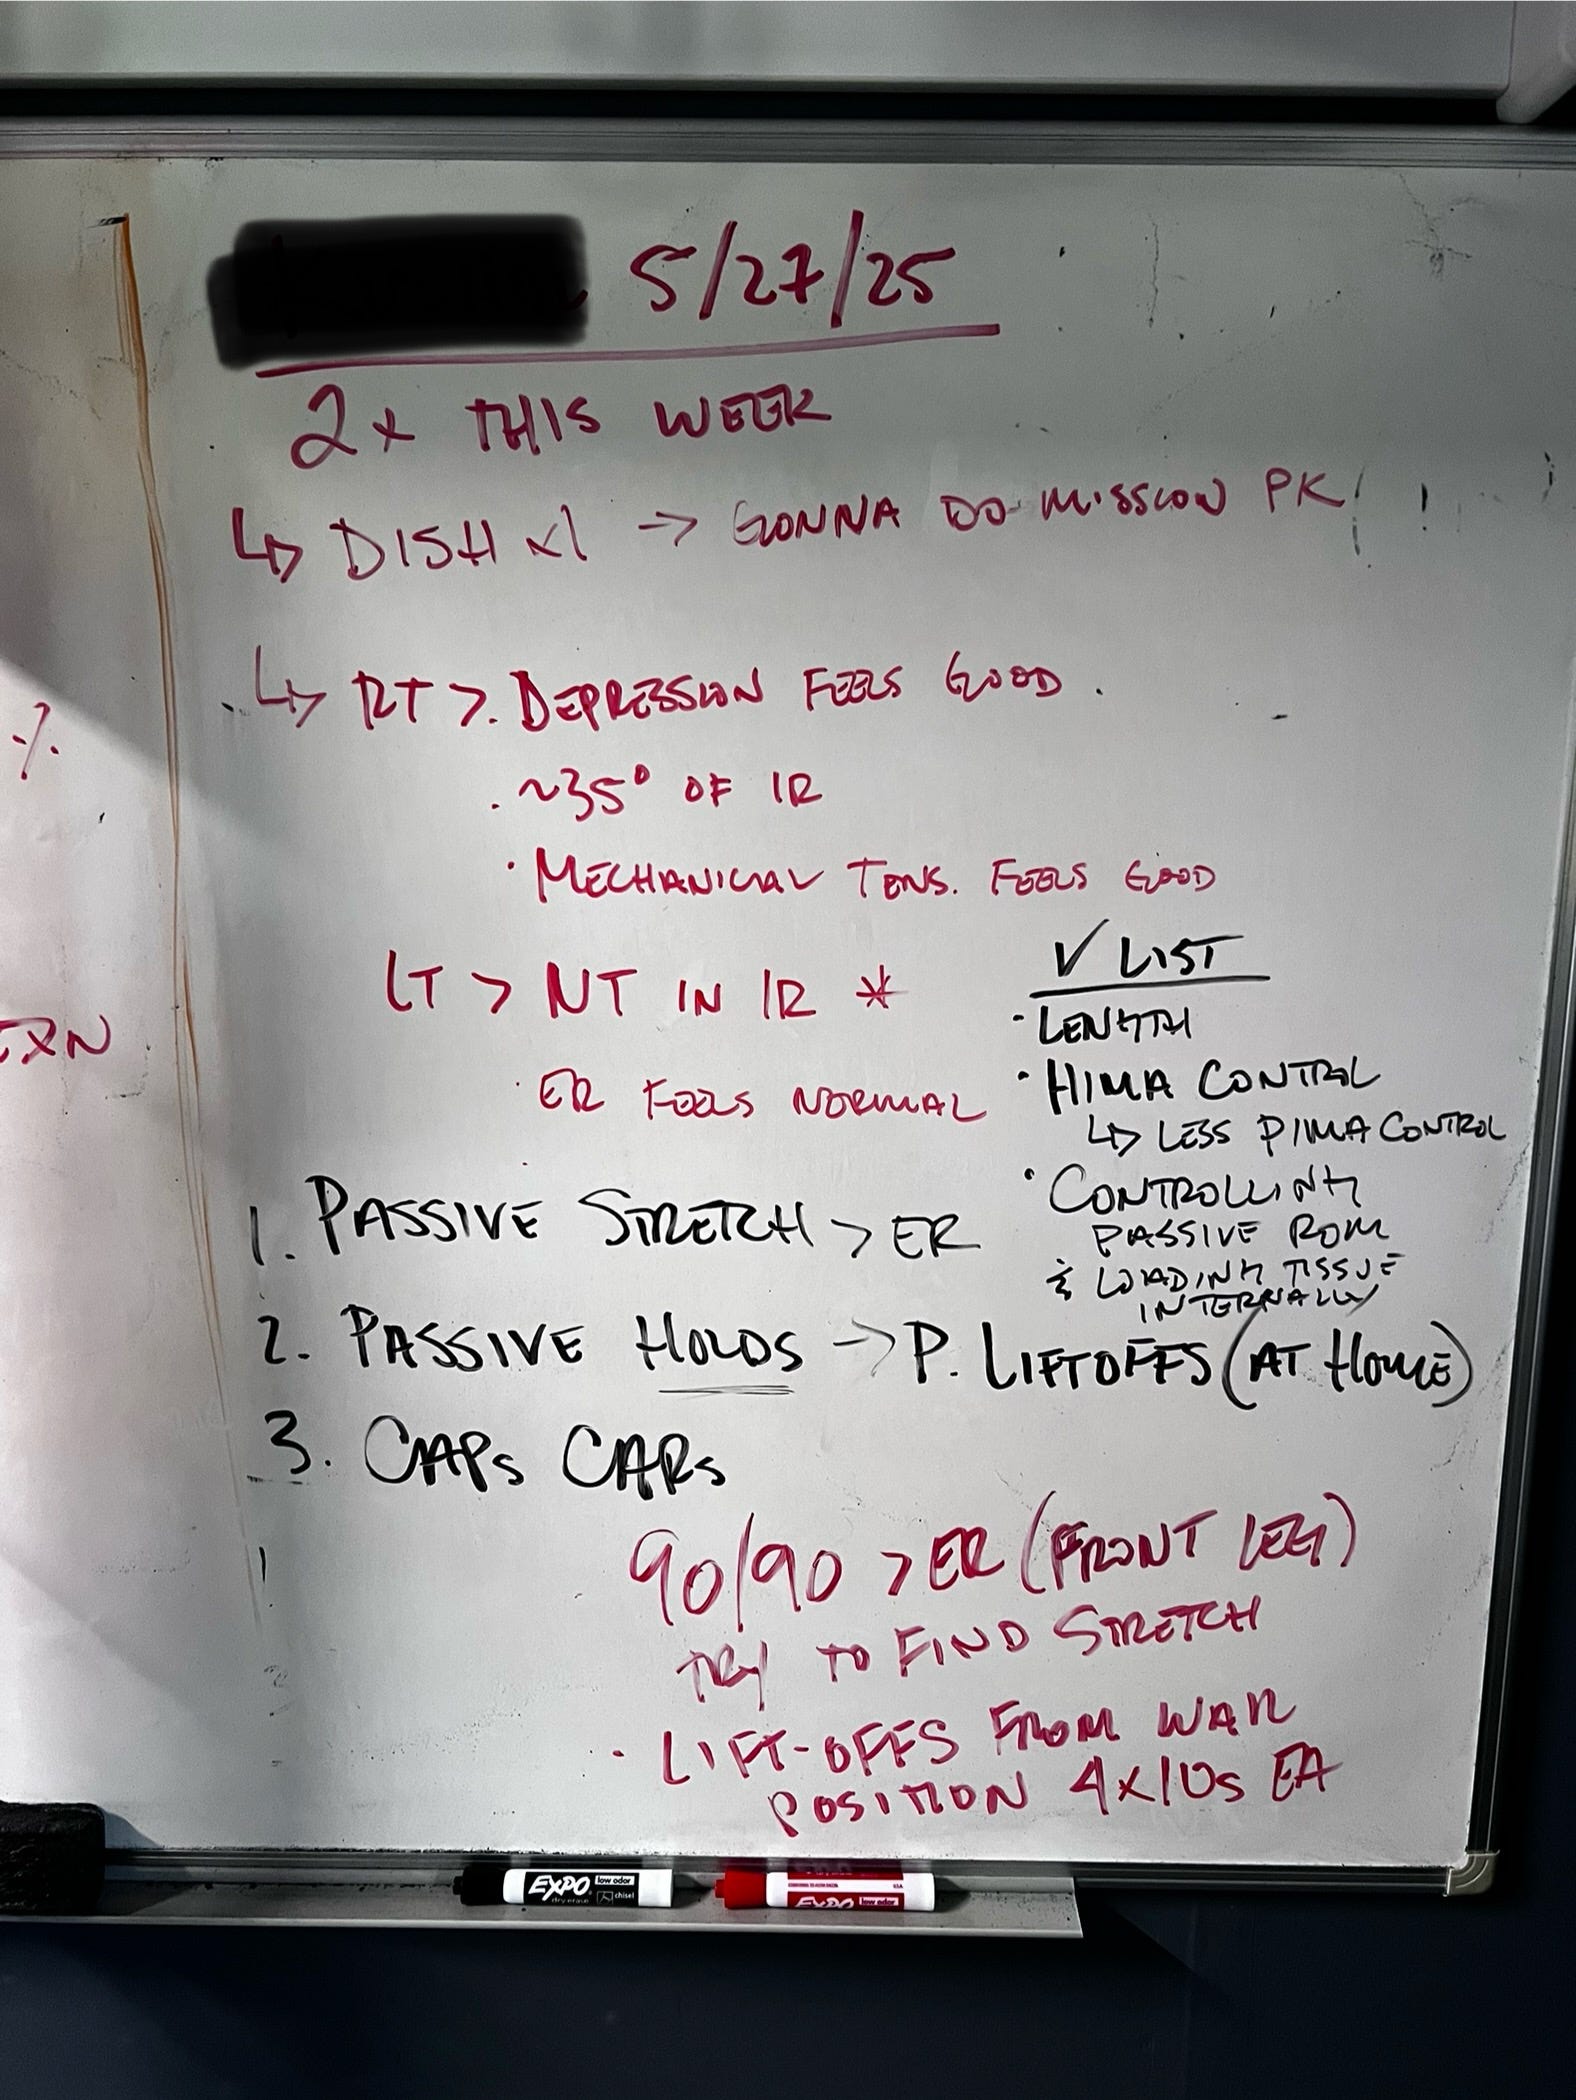 5/27/25
2x THIS WEEK
↳ DISH x1 → GONNA DO MISSION PK!
↳ RT > · DEPRESSION FEELS GOOD.
· ~35° OF IR
· MECHANICAL TENS. FEELS GOOD
LT > NT IN IR *
· ER FEELS NORMAL
✓ LIST
· LENGTH
· HIMA CONTROL
↳ LESS PIMA CONTROL
· CONTROLLING
PASSIVE ROM
& LOADING TISSUE
INTERNALLY
1. PASSIVE STRETCH > ER
2. PASSIVE HOLDS → P. LIFTOFFS (AT HOME)
3. CAPs CARs
90/90 > ER (FRONT LEG)
TRY TO FIND STRETCH
· LIFT-OFFS FROM WAR
POSITION 4x10s EA
%
EXPO
low odor
dry erase
chisel
EXPO
low odor